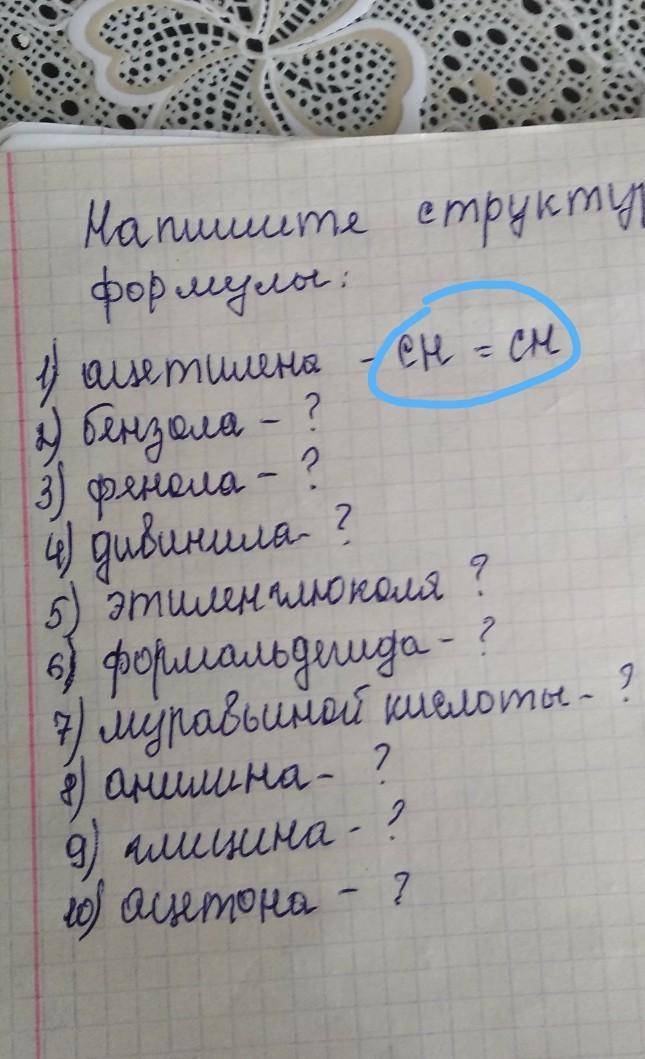 Напишите структур
формулы:
1) ацетилена - CH = CH
2) бензола - ?
3) фенола - ?
4) дивинила - ?
5) этиленглюколя ?
6) формальдегида - ?
7) муравьиной кислоты - ?
8) анилина - ?
9) глицина - ?
10) ацетона - ?